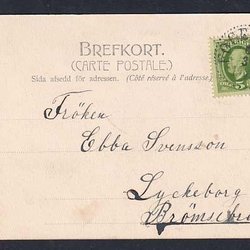 BREFKORT.
(CARTE POSTALE.)
Sida afsedd för adressen. (Côté réservé à l'adresse.)
Fröken
Ebba Svensson
Lyckeborg
Brömsebro